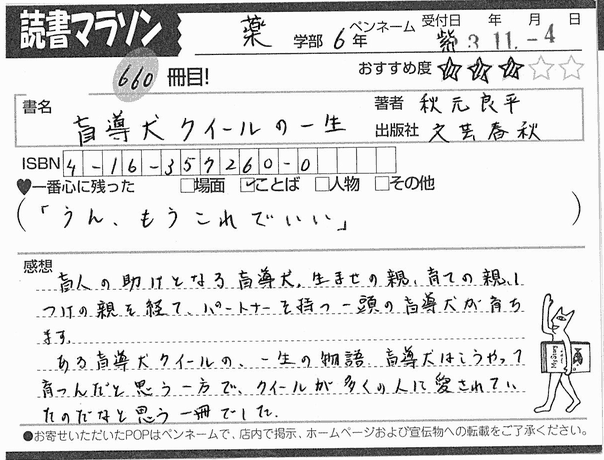 読書マラソン
薬 学部 6 年 ペンネーム 紫 受付日 年 月 日
3.11.-4
660 冊目!
おすすめ度 ★★★☆☆
書名 盲導犬クイールの一生
著者 秋元良平
出版社 文芸春秋
ISBN 4-16-357260-0
♥一番心に残った □場面 ☑ことば □人物 □その他
(「うん、もうこれでいい」)
感想
盲人の助けとなる盲導犬。生ませの親、育ての親、し
つけの親を経て、パートナーを持つ一頭の盲導犬が育ち
ます。
ある盲導犬クイールの、一生の物語。盲導犬はこうやって
育つんだと思う一方で、クイールが多くの人に愛されてい
たのだなと思う一冊でした。
●お寄せいただいたPOPはペンネームで、店内で掲示、ホームページおよび宣伝物への転載をご了承ください。